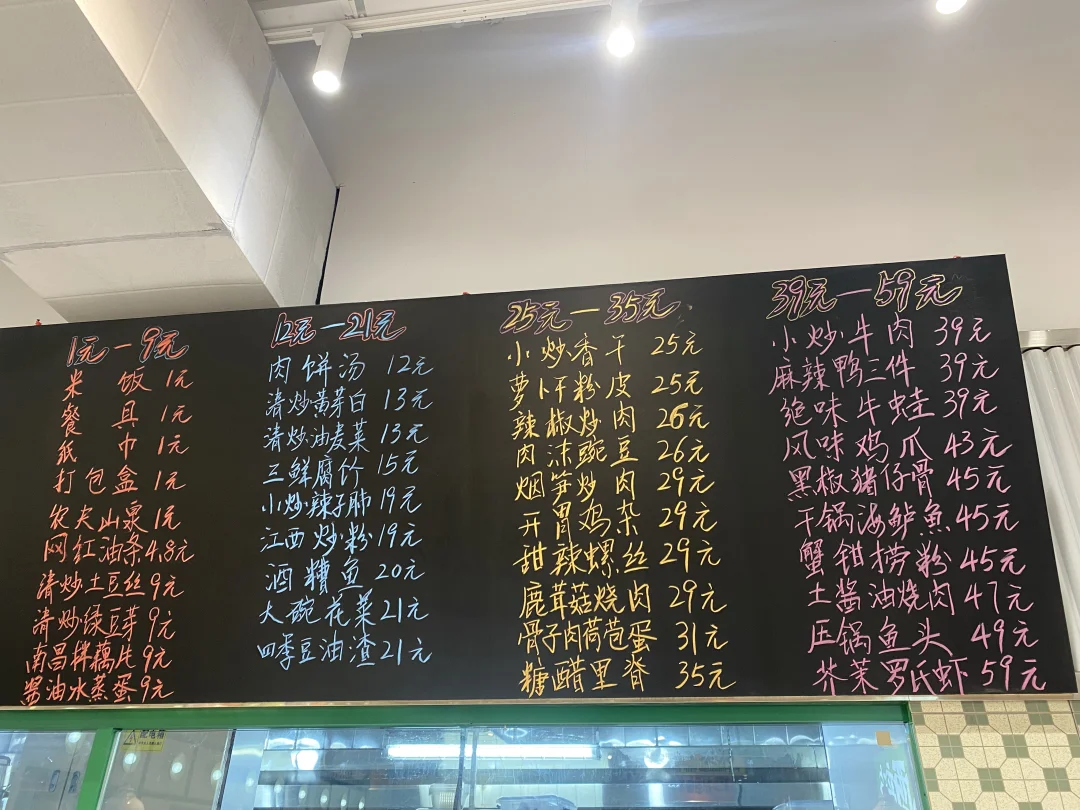 1元-9元
米饭 1元
餐具 1元
纸巾 1元
打包盒 1元
农夫山泉 1元
网红油条 4.8元
清炒土豆丝 9元
清炒绿豆芽 9元
南昌拌藕片 9元
酱油水蒸蛋 9元
12元-21元
肉饼汤 12元
清炒黄芽白 13元
清炒油麦菜 13元
三鲜腐竹 15元
小炒辣子肺 19元
江西炒粉 19元
酒糟鱼 20元
大碗花菜 21元
四季豆油渣 21元
25元-35元
小炒香干 25元
萝卜干粉皮 25元
辣椒炒肉 26元
肉沫豌豆 26元
烟笋炒肉 29元
开胃鸡杂 29元
甜辣螺丝 29元
鹿茸菇烧肉 29元
骨子肉荷苞蛋 31元
糖醋里脊 35元
39元-59元
小炒牛肉 39元
麻辣鸭三件 39元
绝味牛蛙 39元
风味鸡爪 43元
黑椒猪仔骨 45元
干锅海鲈鱼 45元
蟹钳捞粉 45元
土酱油烧肉 47元
压锅鱼头 49元
芥茉罗氏虾 59元
配电箱